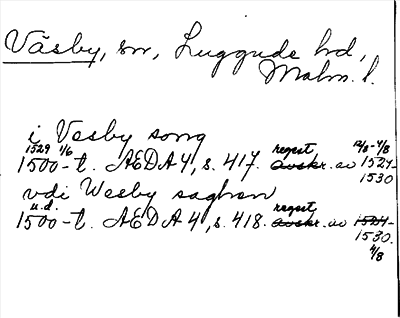 Väsby, sn, Luggude hd,
Malm. l.
i Vesby song
1529 1/6 regest 12/8-4/8
1500-t. AEDA 4, s. 417. avskr. av 1527-
1530
vdi Wesby saghen
u.d. regest
1500-t. AEDA 4, s. 418. avskr. av 1524-
1530.
4/8